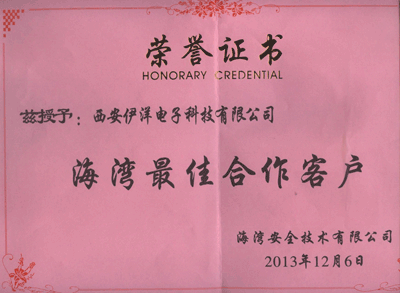 荣誉证书
HONORARY CREDENTIAL
兹授予：西安伊洋电子科技有限公司
海湾最佳合作客户
海湾安全技术有限公司
2013年12月6日